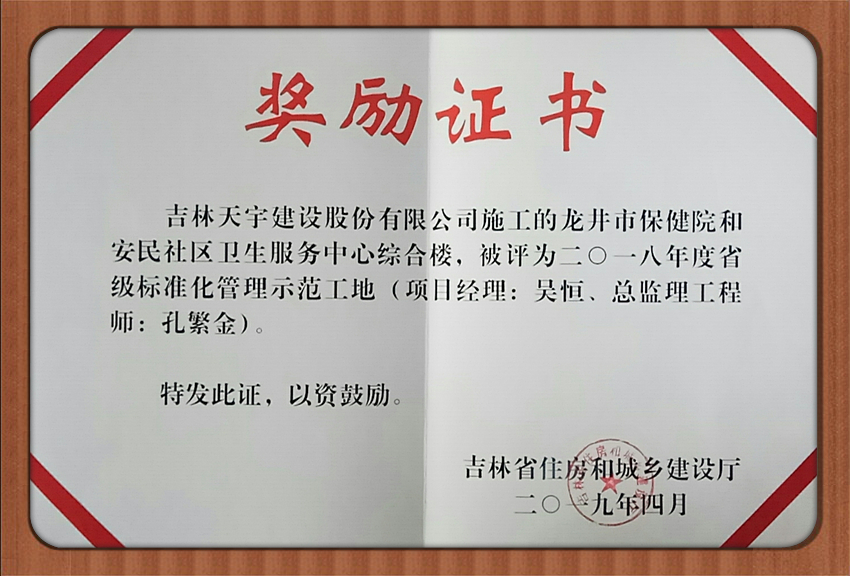 奖励证书
吉林天宇建设股份有限公司施工的龙井市保健院和
安民社区卫生服务中心综合楼，被评为二〇一八年度省
级标准化管理示范工地（项目经理：吴恒、总监理工程
师：孔繁金）。
特发此证，以资鼓励。
吉林省住房和城乡建设厅
二〇一九年四月